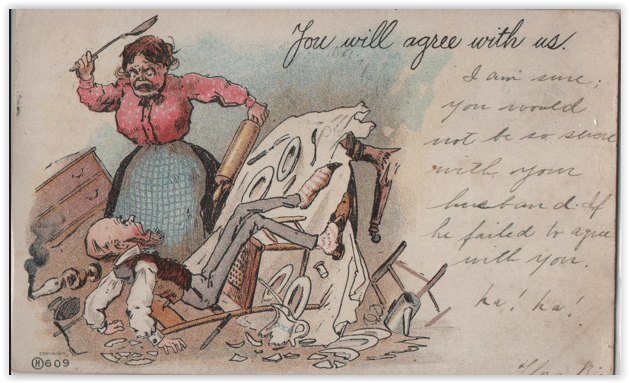 You will agree with us.
I am sure;
you would
not be so severe
with your
husband. If
he failed to agree
with you.
ha! ha!
COPYRIGHT
H 609